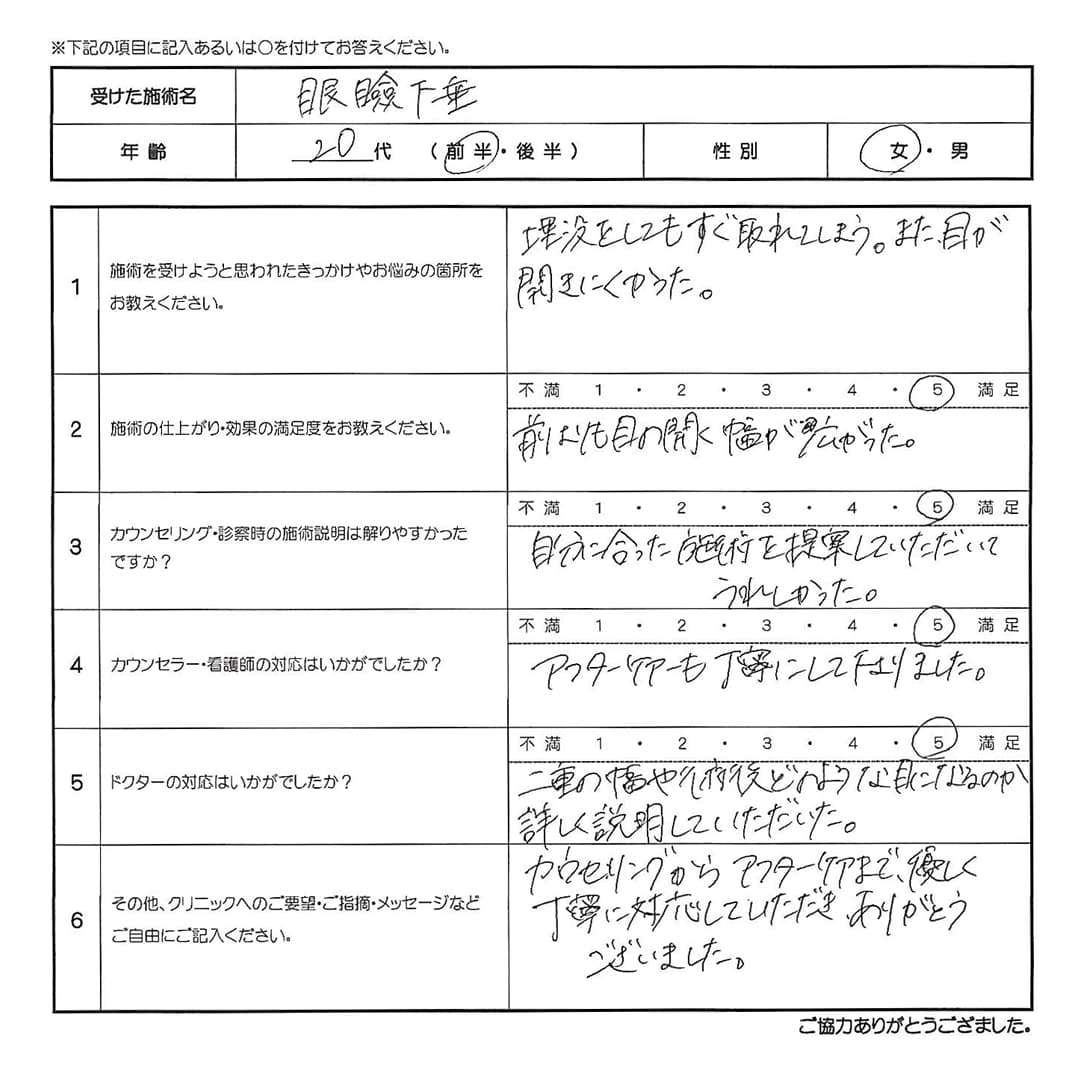 ※下記の項目に記入あるいは○を付けてお答えください。
受けた施術名 眼瞼下垂
年齢 20代 (前半・後半) 性別 女・男
1 施術を受けようと思われたきっかけやお悩みの箇所を
お教えください。
埋没をしてもすぐ取れてしまう。また、目が
開きにくかった。
2 施術の仕上がり・効果の満足度をお教えください。
不満 1・2・3・4・5 満足
前よりも目の開く幅が広がった。
3 カウンセリング・診察時の施術説明は解りやすかった
ですか？
不満 1・2・3・4・5 満足
自分に合った施術を提案していただいて
うれしかった。
4 カウンセラー・看護師の対応はいかがでしたか？
不満 1・2・3・4・5 満足
アフターケアーも丁寧にして下さりました。
5 ドクターの対応はいかがでしたか？
不満 1・2・3・4・5 満足
二重の幅や術後どのような目になるのか
詳しく説明していただいた。
6 その他、クリニックへのご要望・ご指摘・メッセージなど
ご自由にご記入ください。
カウセリングから アフターケアまで、優しく
丁寧に対応していただき、ありがとう
ございました。
ご協力ありがとうござました。